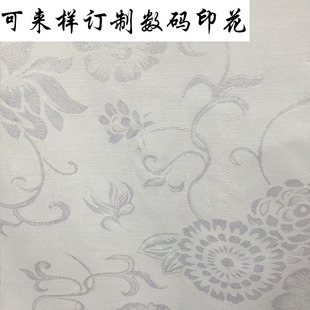 可来样订制数码印花